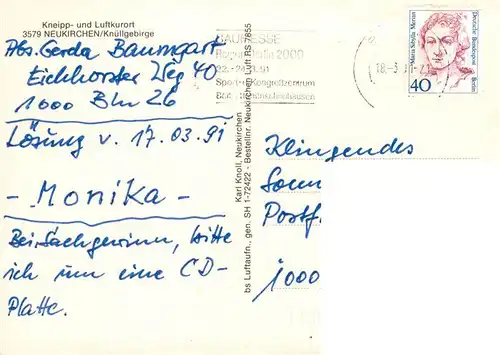 Kneipp- und Luftkurort
3579 NEUKIRCHEN/Knüllgebirge
Abs. Gerda Baumgart
Eichhorster Weg 40
1000 Bln 26
Lösung v. 17.03.91
- Monika -
Bei Sachgewinn, bitte
ich um eine CD-
Platte.
Karl Knoll, Neukirchen
bs Luftaufn., gen. SH 1-72422 - Bestellnr. Neukirchen Luft RS 7855
2000
Maria Sibylla Merian
Deutsche Bundespost
Berlin
40
Klingendes
Sonn
Postf.
1000